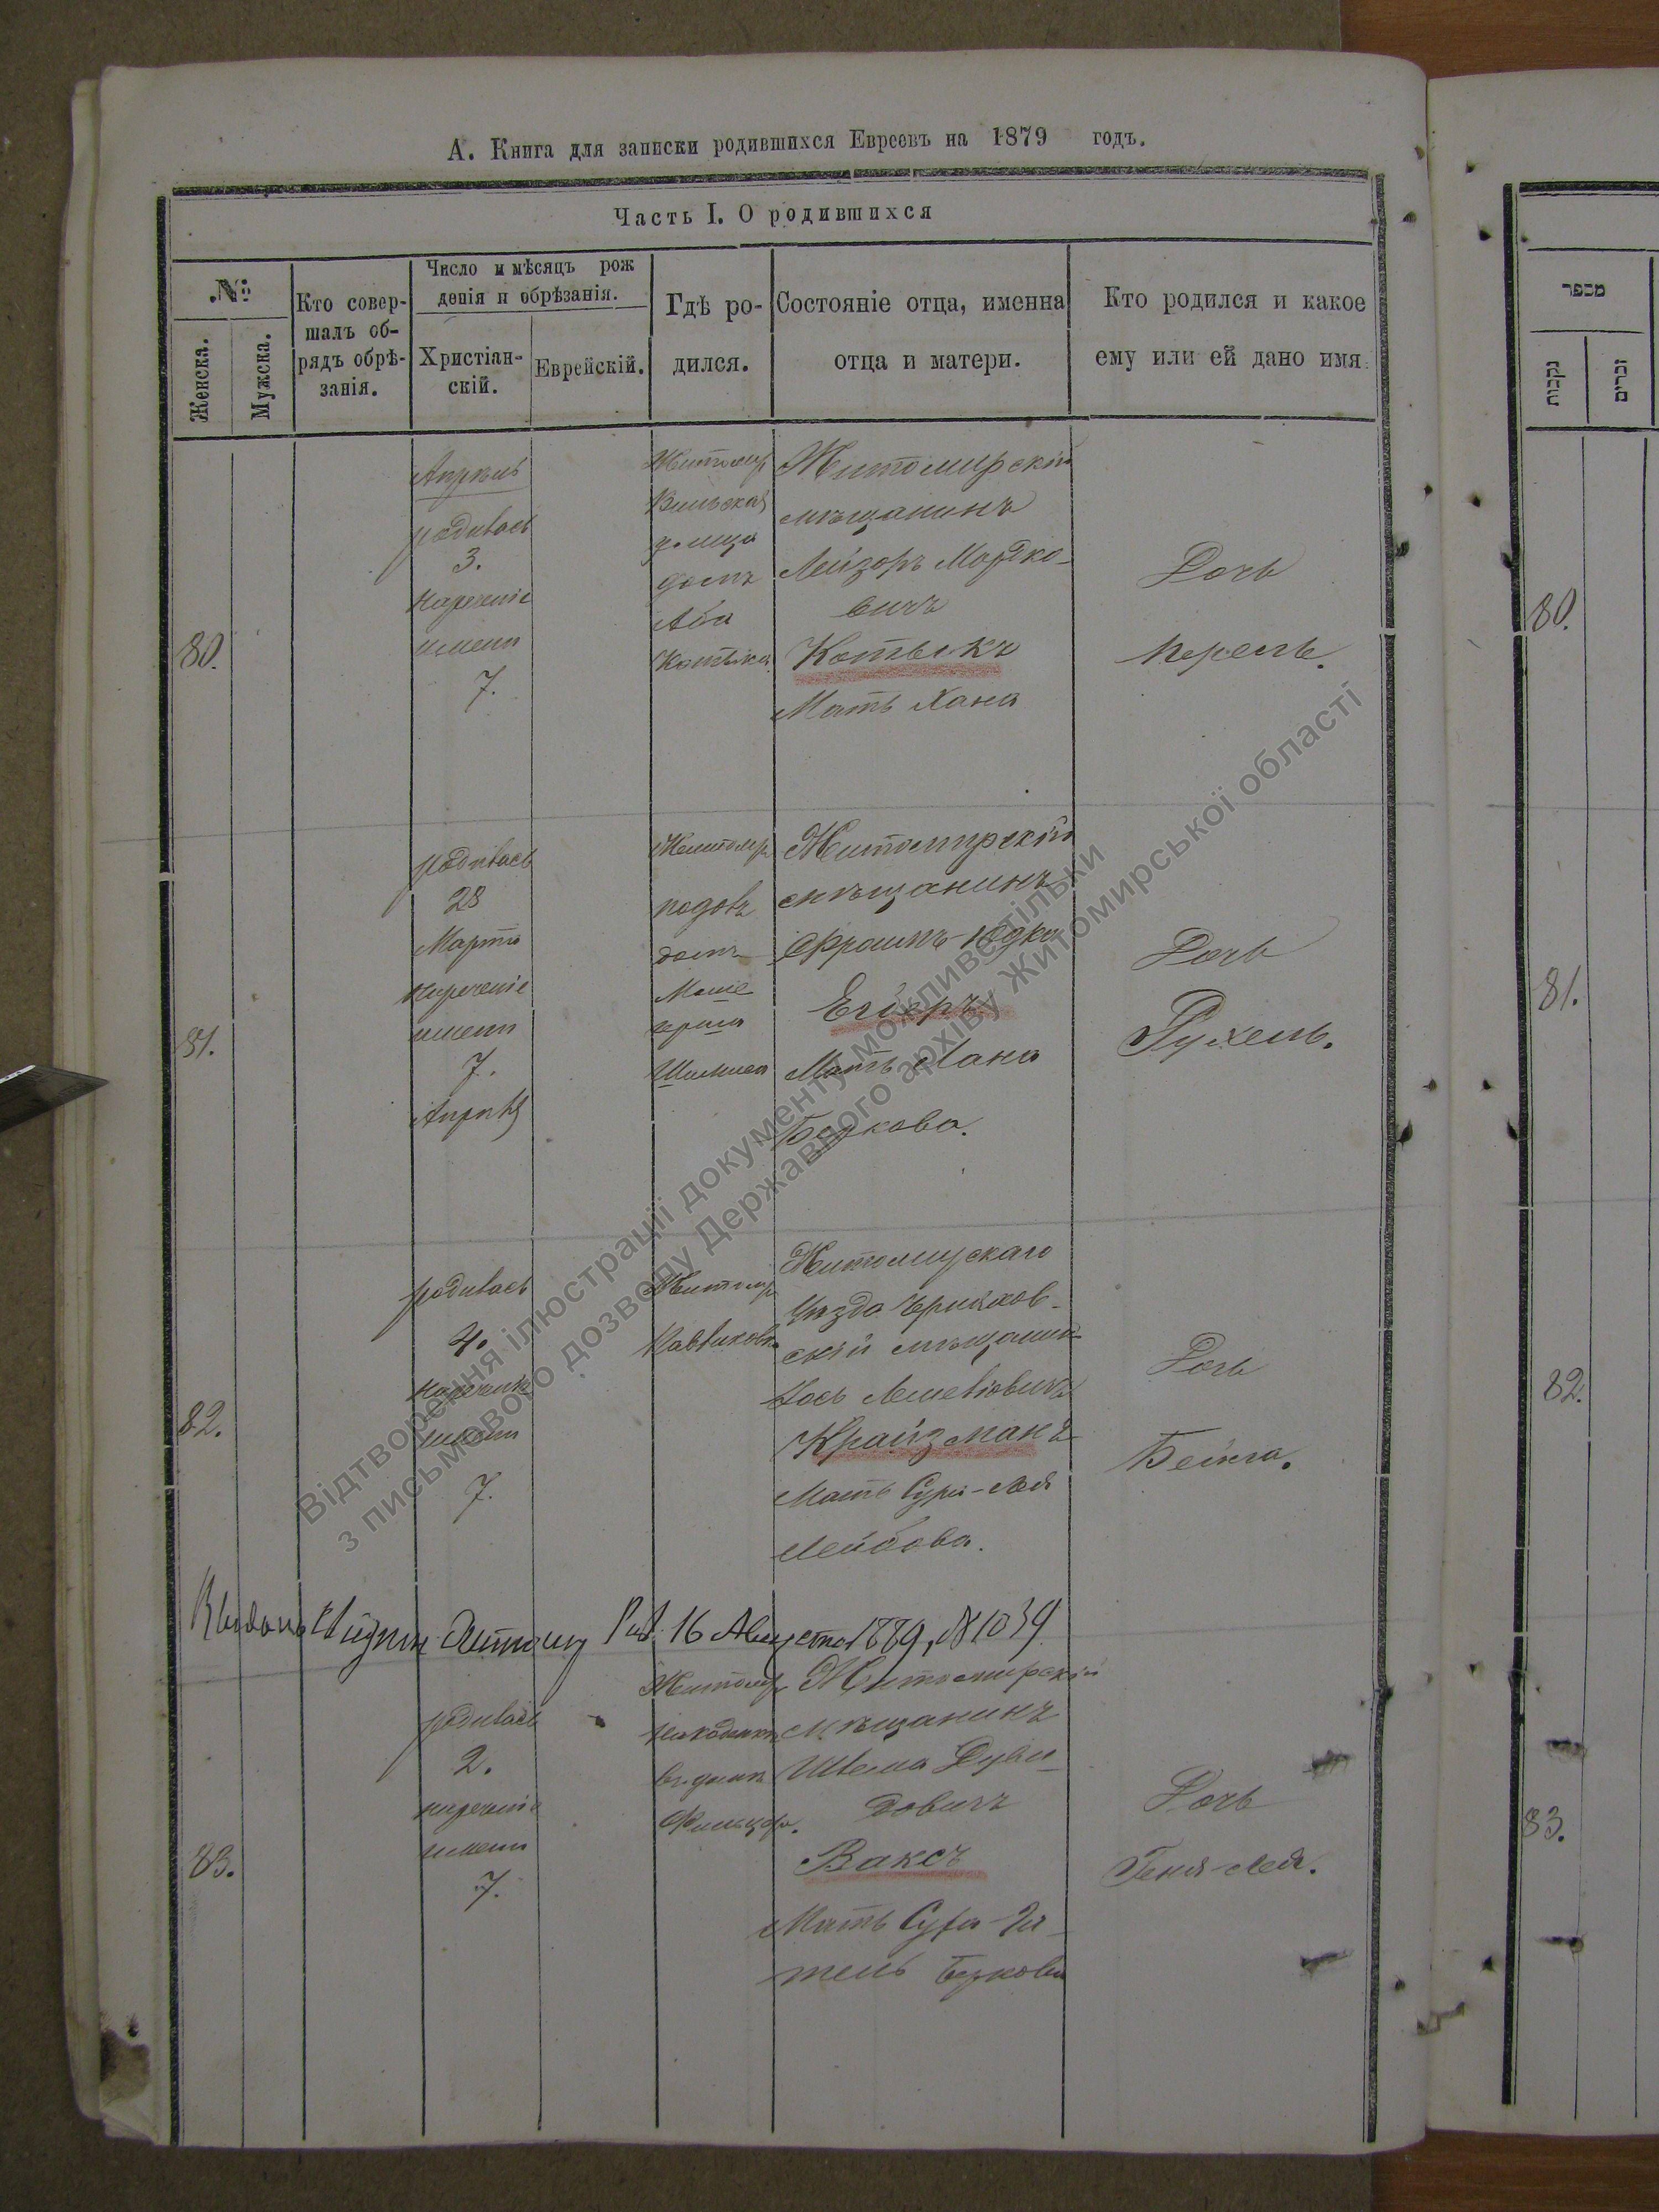 А. Книга для записки родившихся Евреевъ на 1879 годъ.
Часть I. О родившихся
№
Женска.
Мужска.
Кто совер-
шалъ об-
рядъ обрѣ-
занія.
Число и мѣсяцъ рож
денія и обрѣзанія.
Христіан-
скій.
Еврейскій.
Гдѣ ро-
дился.
Состояніе отца, именна
отца и матери.
Кто родился и какое
ему или ей дано имя.
80.
Апрѣль
родилась
3.
Нареченіе
имени
7.
Житомир
Вильская
улица
домъ
Аба
Котыка
Житомирскій
мѣщанинъ
Лейзоръ Мордко-
вичъ
Котыкъ
Мать Хана
Дочь
Перель.
81.
родилась
28
Марта
Нареченіе
имени
7.
Апрѣля
Житомир
домъ
Житомирскій
мѣщанинъ
Фроимъ-Юдко
Мать Хана
Беркова.
Дочь
Рухель.
82.
родилась
4.
Нареченіе
имени
7.
Житомир
Житомирскаго
уѣзда
скій мѣщанин
Іось
Крайзманъ
Мать Сура-Лея
Лейбова.
Дочь
Бейла.
16 Августа 1889, № 1039
83.
родилась
2.
нареченіе
имени
7.
Житомир
въ домѣ
Житомирскій
мѣщанинъ
Шлема Дуви-
довичъ
Ваксъ
Мать Сура-Ги-
тель Беркова
Дочь
Геня-Лея.
מכפר
נקבות
זכרים
80.
81.
82.
83.
Відтворення ілюстрації документу можливе тільки
з письмового дозволу Державного архіву Житомирської області